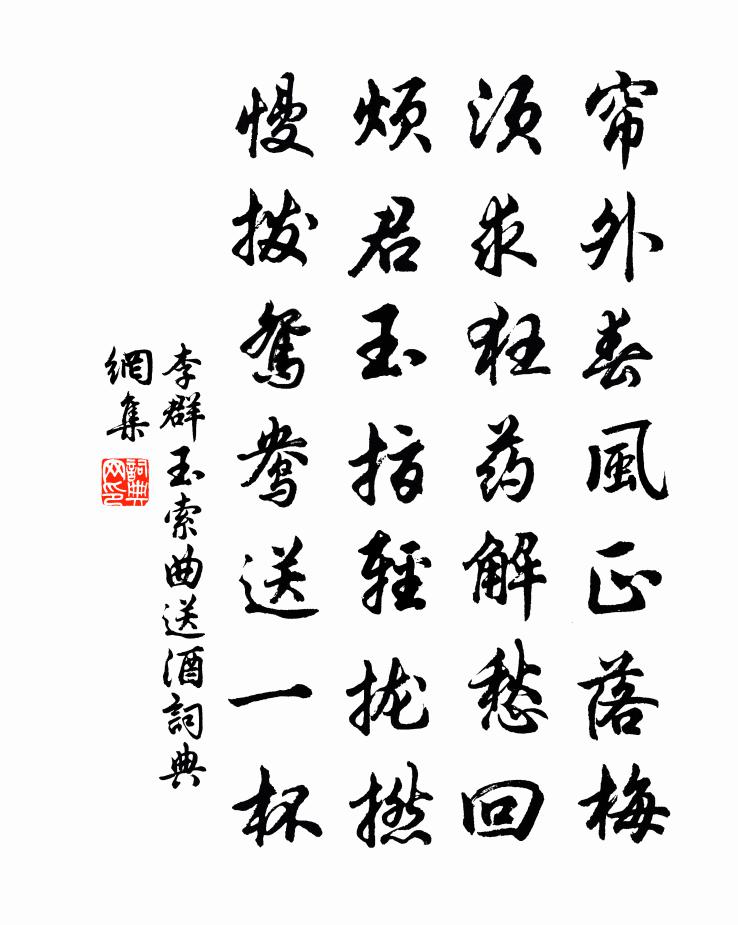 帘外春風正落梅
须求狂药解愁回
烦君玉指輕拢撚
慢拨鴛鴦送一杯
李群玉索曲送酒詞典
網集
詞典网印